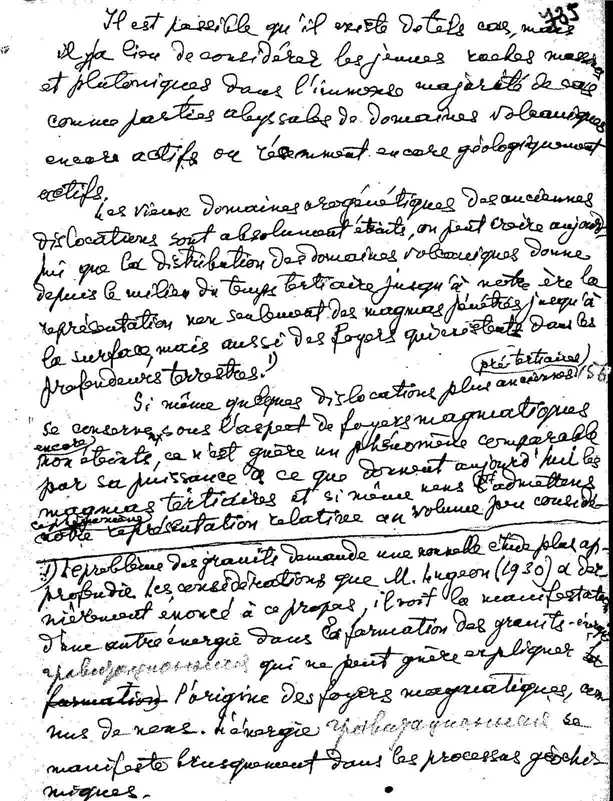 735
Il est possible qu'il existe de tels cas, mais
il y a lieu de considérer les jeunes roches massives
et plutoniques dans l'immense majorité de cas
comme parties abyssales de domaines volcaniques
encore actifs ou récemment encore géologiquement
actifs.
Les vieux domaines orogénétiques des anciennes
dislocations sont absolument éteints, on peut croire aujourd
hui que la distribution des domaines volcaniques donne
depuis le milieu du temps tertiaire jusqu'à notre ère la
représentation non seulement des magmas pénétrés jusqu'à
la surface, mais aussi des foyers qui existent dans les
profondeurs terrestres.1)
(prétertiaires)
Si même quelques dislocations plus anciennes 156
se conservent sous l'aspect de foyers magmatiques
encore
non éteints, ce n'est guère un phénomène comparable
par sa puissance à ce que donnent aujourd'hui les
magmas tertiaires et si même nous l'admettons
ce phénomène
notre représentation relative au volume peu considé-
1) Le problème des granits demande une nouvelle étude plus ap-
profondie. Les considérations que M. Lugeon (1930) a der
nièrement énoncé à ce propos, il voit la manifestation
d'une autre énergie dans la formation des granits - énergie
гравитационная qui ne peut guère expliquer
formation l'origine des foyers magmatiques, con
nus de nous. L'énergie гравитационная se
manifeste brusquement dans les processus géochi
miques.